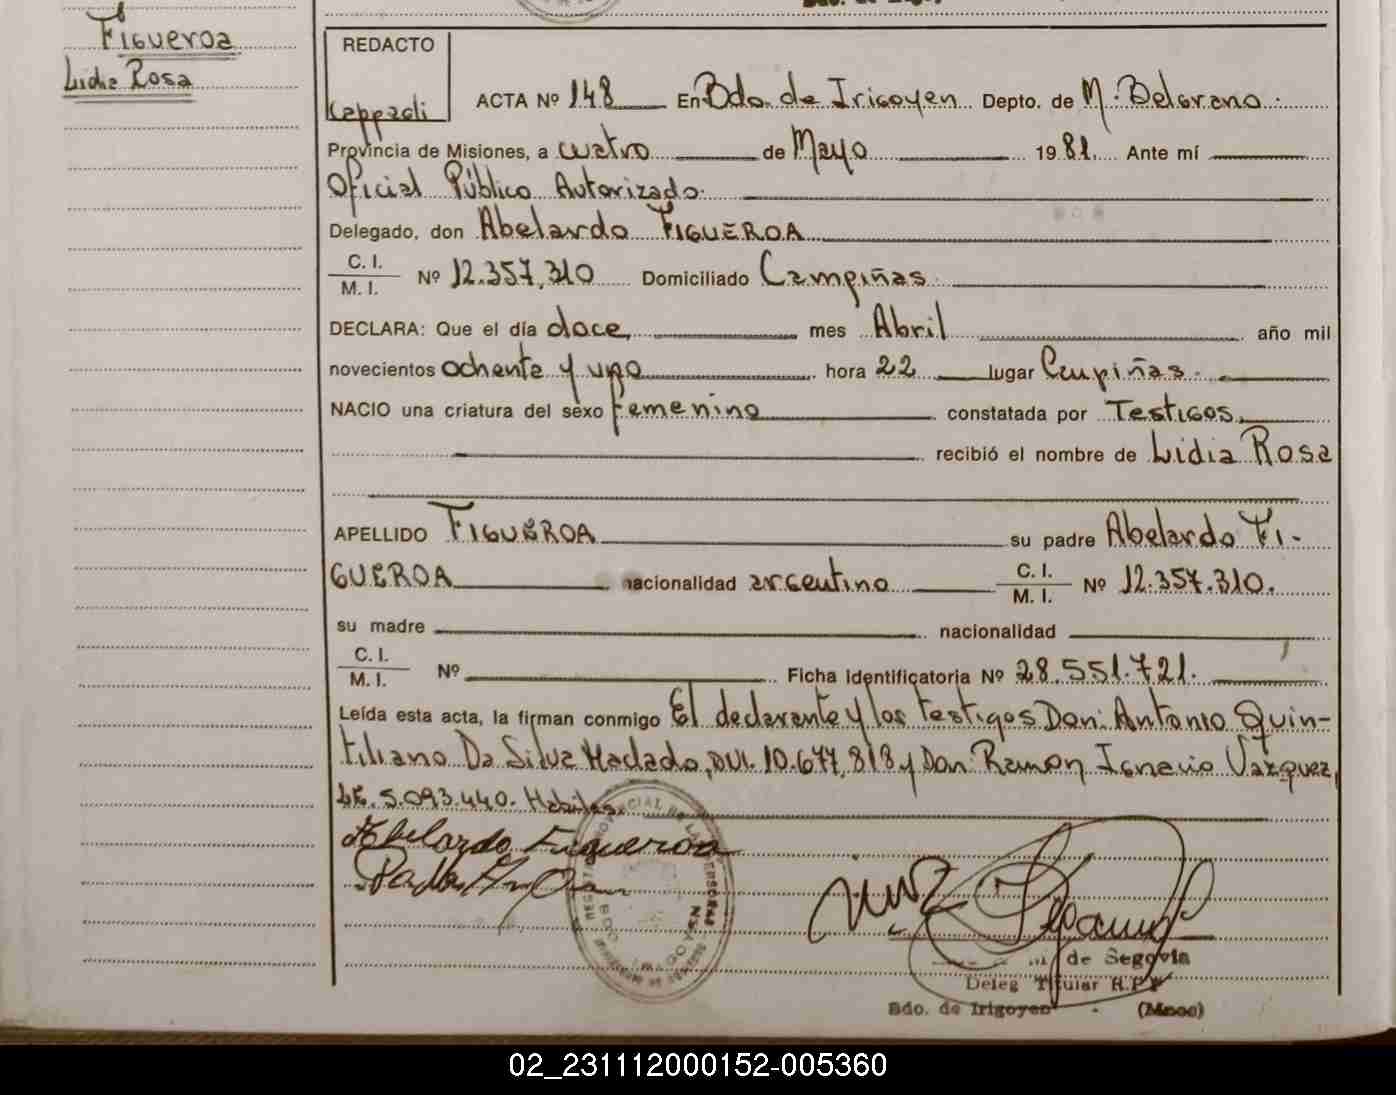 Figueroa
Lidia Rosa
REDACTO
Cappadi
ACTA Nº 148 En Bdo. de Irigoyen Depto. de M. Belgrano.
Provincia de Misiones, a cuatro de Mayo 1981. Ante mí
Oficial Público Autorizado.
Delegado, don Abelardo FIGUEROA
C. I.
M. I.
Nº 12.357.310 Domiciliado Campiñas.
DECLARA: Que el día doce, mes Abril año mil
novecientos ochenta y uno hora 22 lugar Campiñas.
NACIO una criatura del sexo femenino constatada por Testigos,
recibió el nombre de Lidia Rosa
APELLIDO FIGUEROA su padre Abelardo FI-
GUEROA nacionalidad argentino C. I.
M. I.
Nº 12.357.310.
su madre nacionalidad
C. I.
M. I.
Nº Ficha identificatoria Nº 28.551.721.
Leída esta acta, la firman conmigo El declarante y los testigos Don: Antonio Quin-
tiliano Da Silva Machado, DNI. 10.677.818 y Don Ramon Ignacio Vazquez,
LE. 5.093.440. Habiles.
Abelardo Figueroa
de Segovia
Deleg Titular R.P.P
Bdo. de Irigoyen (Mnes)
02_231112000152-005360